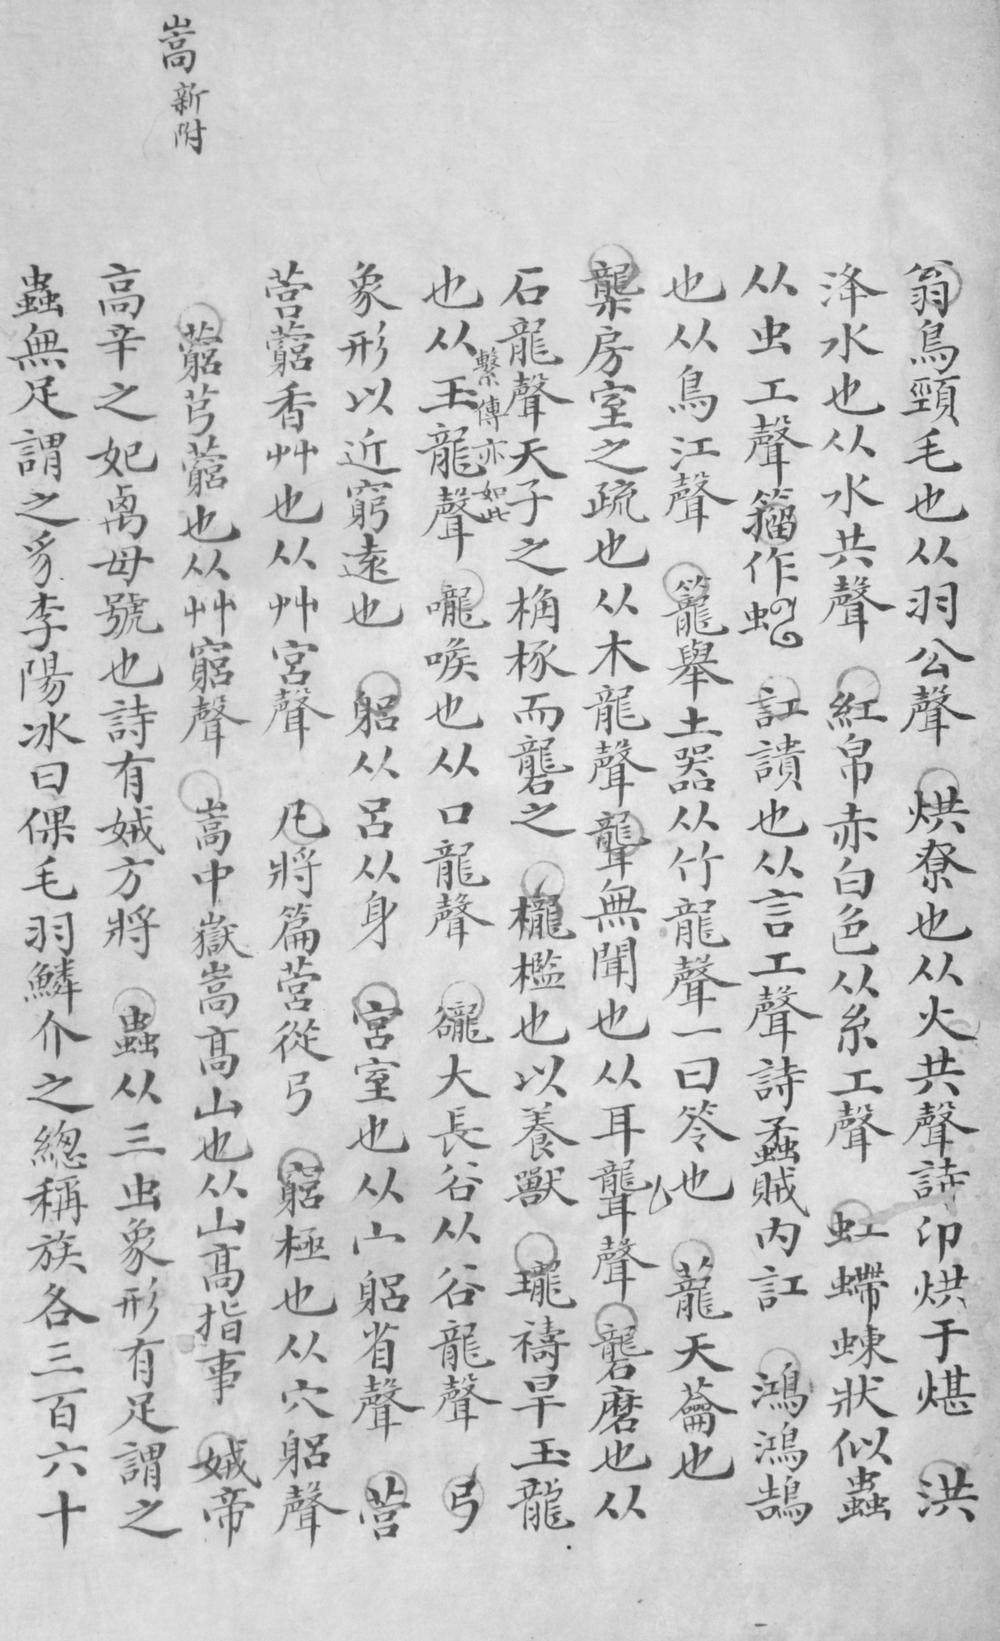 翁鳥頸毛也从羽公聲　烘尞也从火共聲詩卬烘于煁　洪
洚水也从水共聲　紅帛赤白色从糸工聲　虹螮蝀狀似蟲
从虫工聲籀作　訌讃也从言工聲詩蟊賊内訌　鴻鴻鵠
也从鳥江聲　籠舉土器从竹龍聲一曰笭也　蘢天蘥也
櫳房室之疏也从木龍聲　聾無聞也从耳龍聲　礱磨也从
石龍聲天子之桷椓而礱之　櫳檻也以養獸　瓏禱旱玉龍
繫傳亦如此
也从玉龍聲　嚨喉也从口龍聲　豅大長谷从谷龍聲　弓
象形以近窮遠也　躳从呂从身　宮室也从宀躳省聲　营
营藭香艸也从艸宮聲　凡將篇营從弓　竆極也从穴躳聲
藭芎藭也从艸竆聲　嵩中嶽嵩高山也从山高指事　娀帝
嵩新附
高辛之妃卨母號也詩有娀方將　蟲从三虫象形有足謂之
蟲無足謂之豸李陽冰曰倮毛羽鱗介之總稱族各三百六十